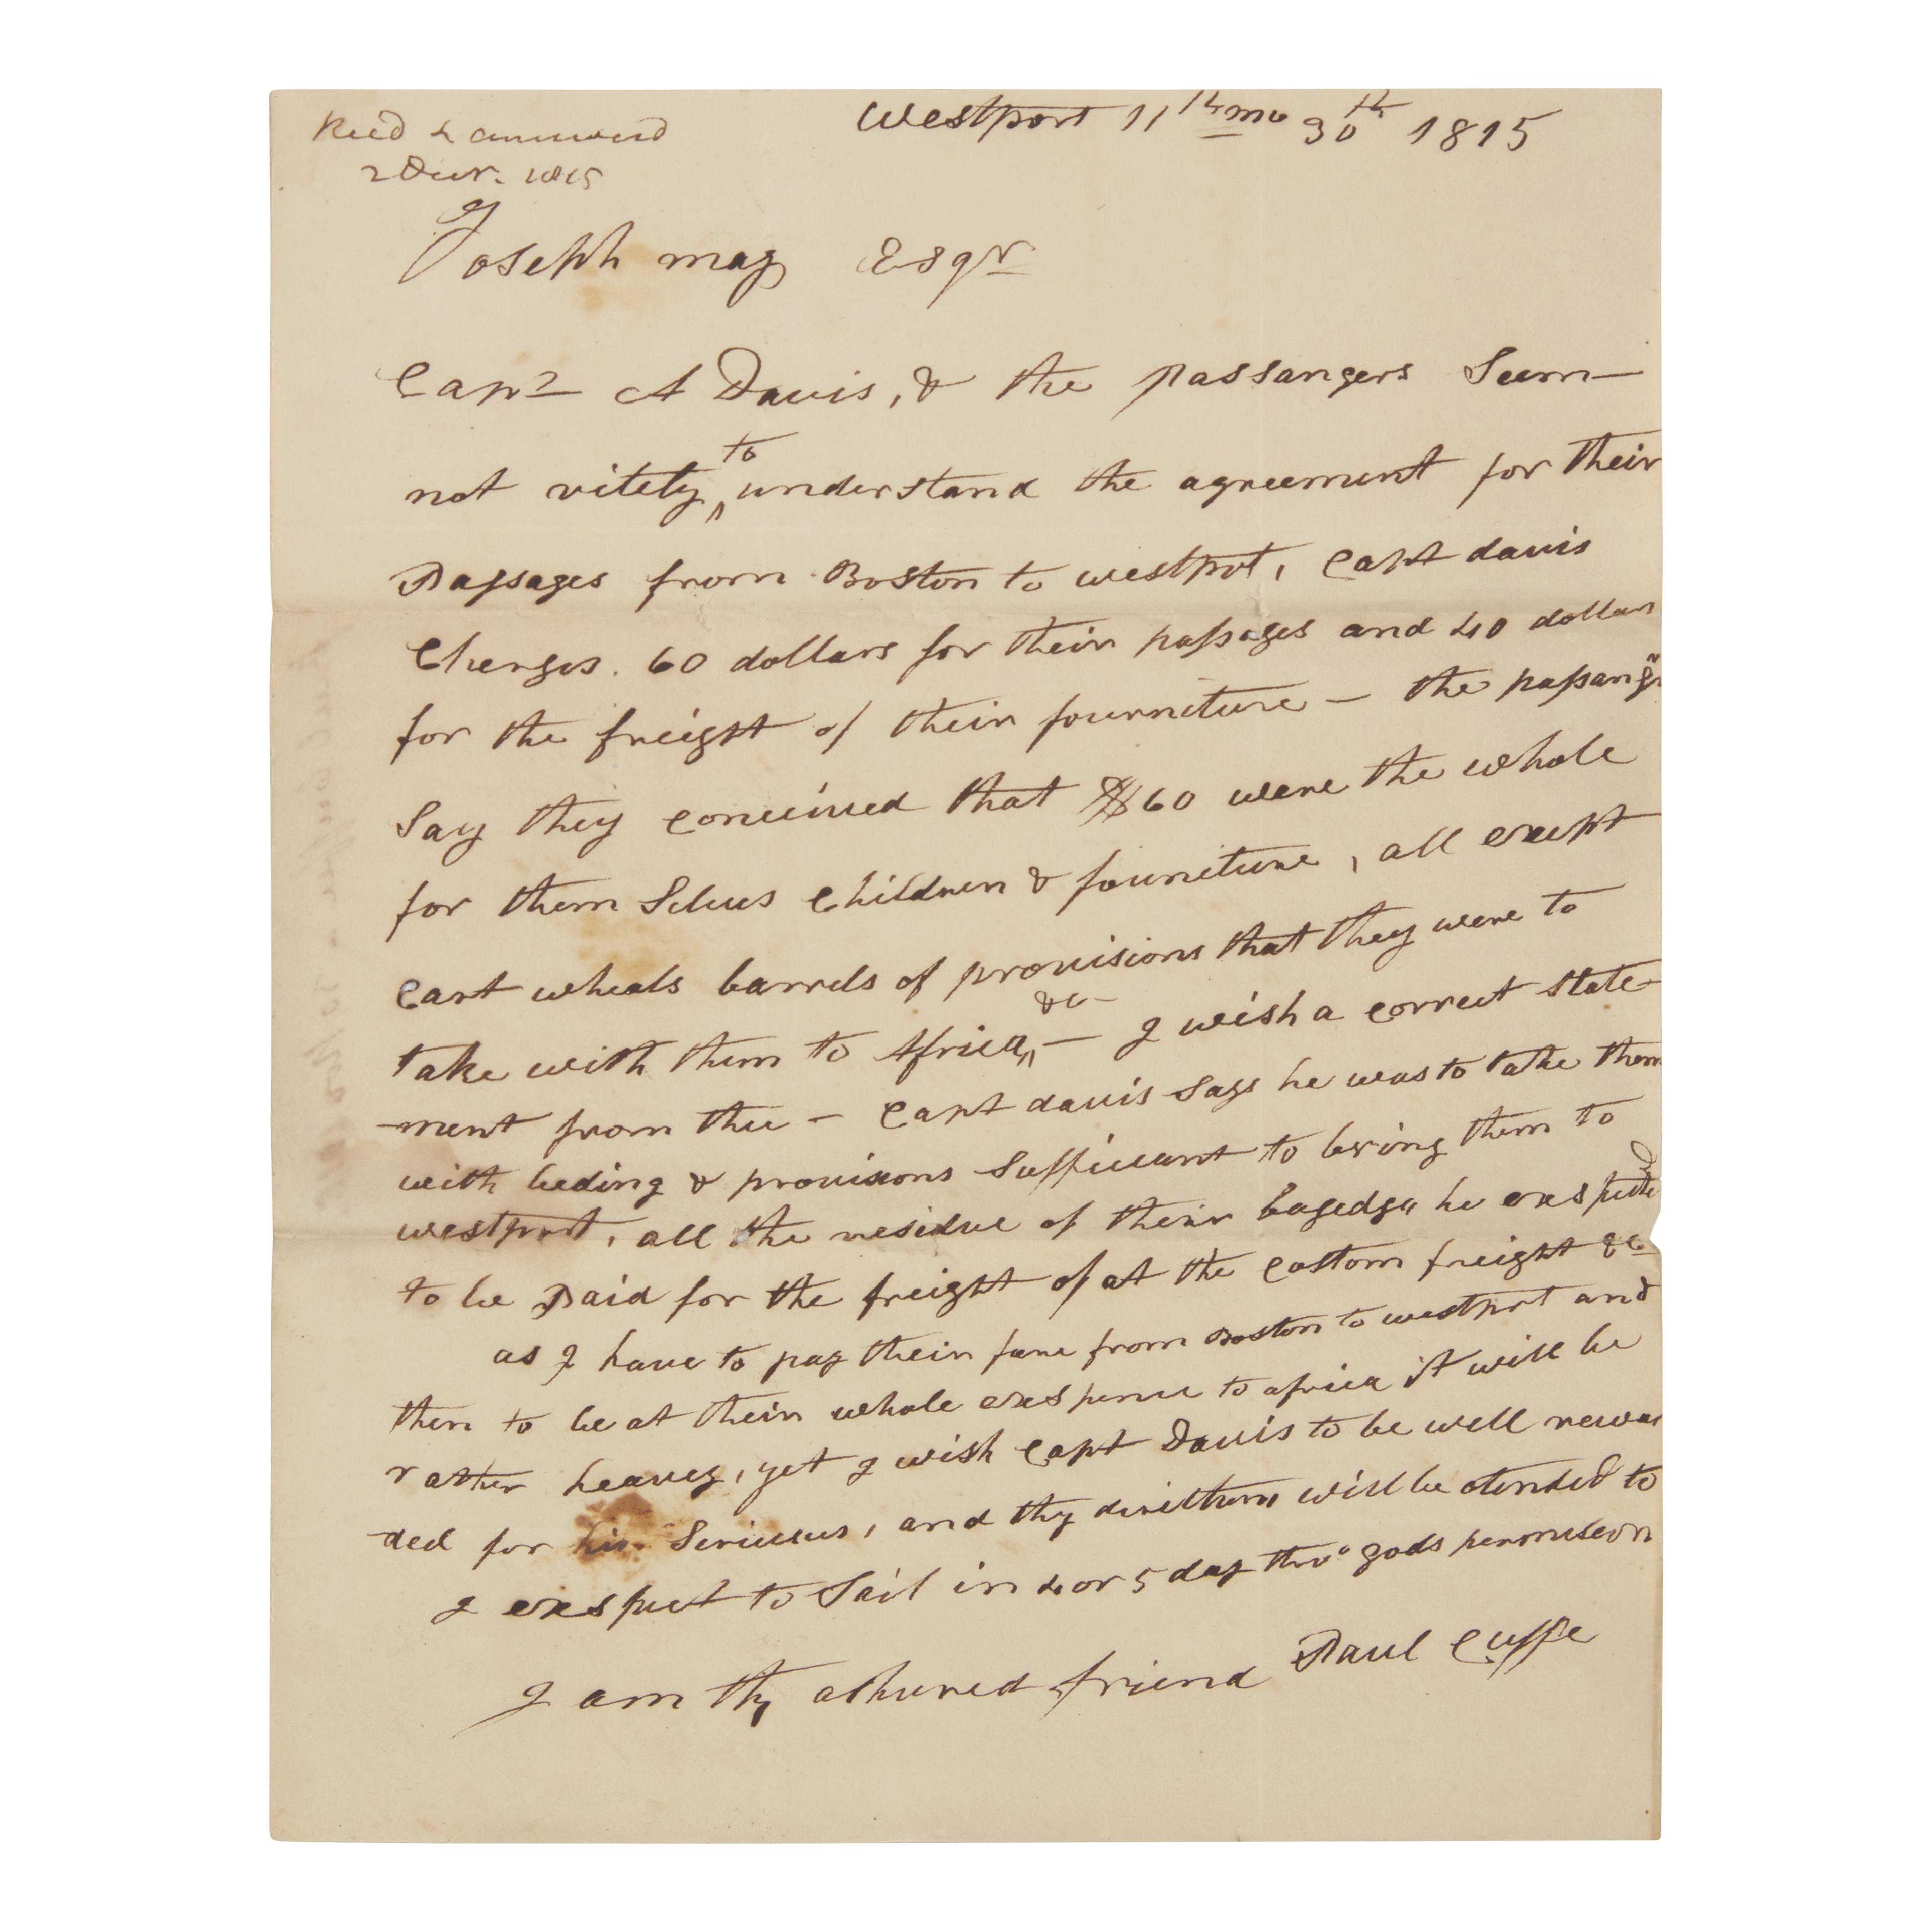 Recd & answered
2 Decr. 1815
Westport 11th mo 30th 1815
Joseph may Esqr
Capt A Davis, & the passangers Seem
not vitely to understand the agreement for their
Passages from Boston to westport, Capt davis
Cherges. 60 dollars for their passages and 40 dollars
for the freight of their fourniture — the passangrs
Say they conceived that $60 were the whole
for them Selves Children & founiture, all except
Cart wheals barrels of provisions that they were to
take with them to Africa, &c — I wish a correct state-
-ment from thee — Capt davis says he was to take them
with beding & provisions Suffiecant to bring them to
westport, all the residue of their bagedge he exspected
to be Paid for the freight of at the Costom freight &c
as I have to pay their fare from Boston to westport and
then to be at their whole exspence to africa it will be
rather heavey, yet I wish Capt Davis to be well rewar
-ded for his Serieces, and thy directions will be atended to
I exspect to Sail in 4 or 5 day thro gods permiseon
I am thy ashured friend Paul Cuffe